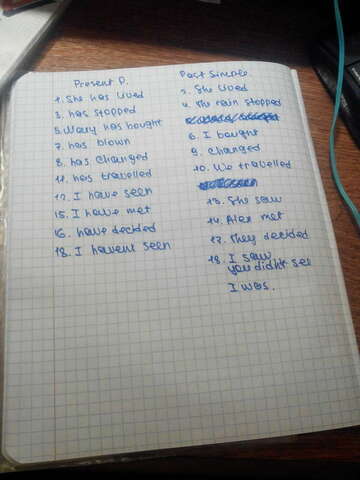 Present P.
1. She has lived
3. has stopped
5. Mary has bought
7. has blown
8. has changed
11. has travelled
12. I have seen
15. I have met
16. have decided
18. I havent seen
Past Simple
2. She lived
4. The rain stopped
6. I bought
9. changed
10. We travelled
13. She saw
14. Alex met
17. They decided
18. I saw
you didn't see
I was.